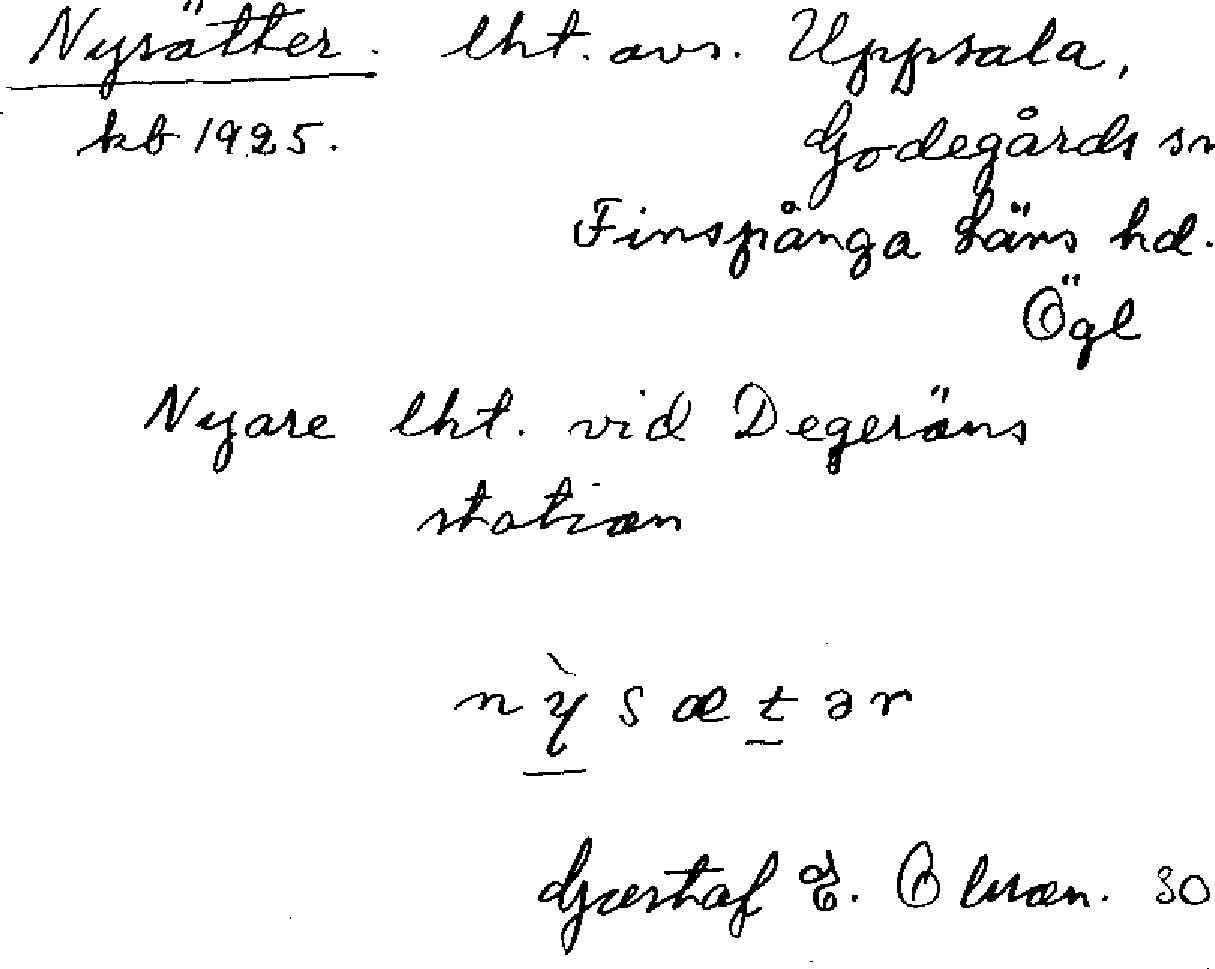 Nysätter. lht. avs. Uppsala,
kb 1925. Godegårds sn
Finspånga läns hd.
Ögl
Nyare lht. vid Degeröns
station
nỳsætər
Gustaf E. Olson. 30